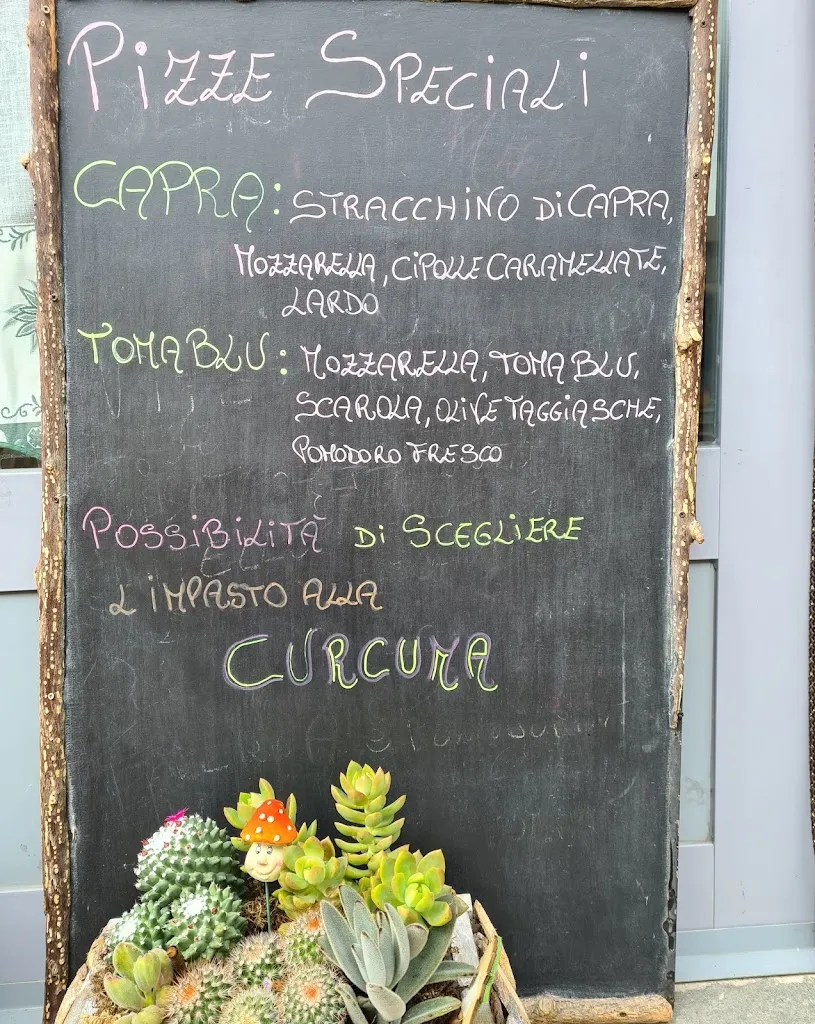 PiZZE SPECiALi
CAPRA: STRACCHiNO Di CAPRA,
MOZZARELLA, CiPOLLE CARAMELLATE,
LARDO
TOMA BLU: MOZZARELLA, TOMA BLU,
SCAROLA, OLiVE TAGGiASCHE,
POMODORO FRESCO
POSSiBiLiTÀ Di SCEGLiERE
L'iMPASTO ALLA
CURCUMA